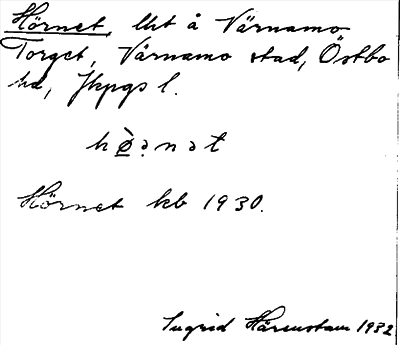 Hörnet, lht å Värnamo
Torget, Värnamo stad, Östbo
hd, Jkpgs l.
hø̀ənət
Hörnet kb 1930.
Ingrid Härenstam 1932